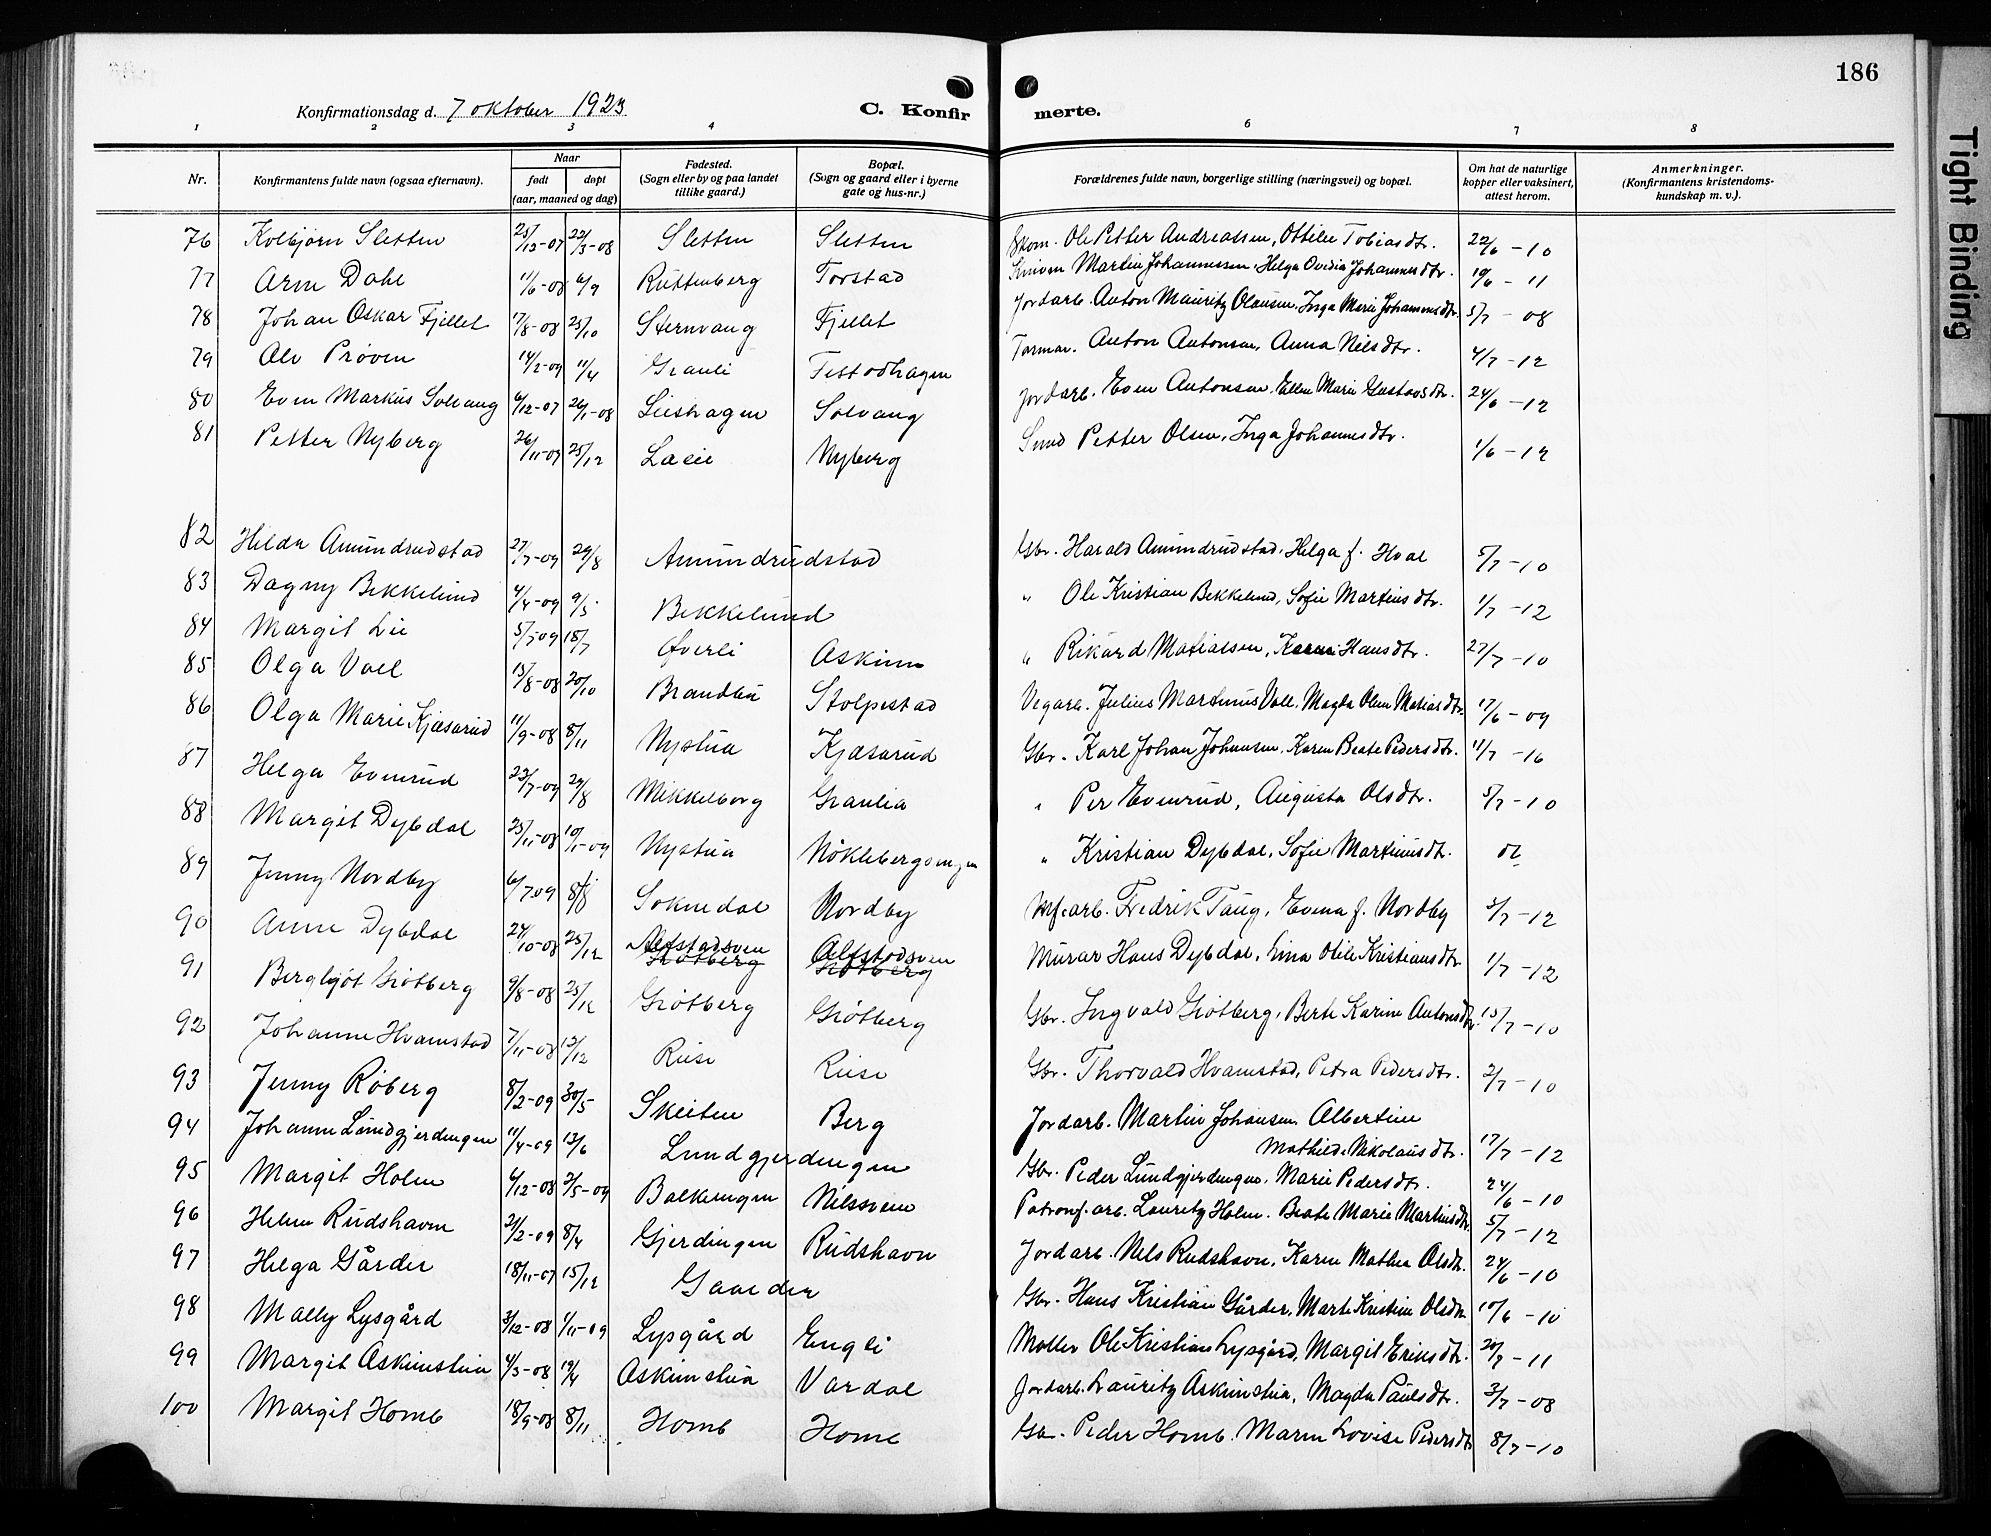 186
Konfirmationsdag d. 7 oktober 1923 C. Konfirmerte.
1 2 3 4 5 6 7 8
Nr. Konfirmantens fulde navn (ogsaa efternavn). Naar født døpt (aar, maaned og dag) Fødested. (Sogn eller by og paa landet tillike gaard.) Bopæl. (Sogn og gaard eller i byerne gate og hus-nr.) Forældrenes fulde navn, borgerlige stilling (næringsvei) og bopæl. Om hat de naturlige kopper eller vaksinert, attest herom. Anmerkninger. (Konfirmantens kristendoms-kundskap m. v.).
76 Kolbjørn Sletten 25/12-07 22/3-08 Sletten Sletten Skom. Ole Petter Andreassen, Ottilie Tobiasdtr. 22/6-10
77 Arne Dahl 11/6-08 6/9 Ruttenberg Torstad Martin Johannessen, Helga Ovidia Johannesdtr. 19/6-11
78 Johan Oskar Fjellet 17/8-08 25/10 Sternvang Fjellet Jordarb. Anton Mauritz Olausen, Inga Marie Johannesdtr. 5/7-08
79 Alv Prøven 14/2-09 11/4 Granli Festodhagen Anton Antonsen, Anna Nilsdtr. 4/7-12
80 Even Markus Solvang 6/12-07 26/1-08 Lieshagen Solvang Jordarb. Even Antonsen, Ellen Marie Gustavsdtr. 24/6-12
81 Petter Nyberg 26/11-09 25/12 Nyberg Smed Petter Olsen, Inga Johannesdtr. 1/6-12
82 Hilda Amundrudstad 27/7-09 29/8 Amundrudstad Gbr. Harald Amundrudstad, Helga f. Hval 5/7-10
83 Dagny Bekkelund 4/4-09 9/5 Bekkelund " Ole Kristian Bekkelund, Sofie Martinsdtr. 1/7-12
84 Margit Lie 5/5 09 18/7 Øverli Askim " Rikard Matiassen, Karen Hansdtr. 27/7-10
85 Olga Voll 15/8-08 20/10 Brandbu Stolpestad Vegarb. Julius Martinus Voll, Magda Oline Matiasdtr. 17/6-09
86 Olga Marie Kjæsarud 11/9-08 8/11 Nystua Kjæsarud Gbr. Karl Johan Johansen, Karen Beate Pedersdtr. 11/7-16
87 Helga Evenrud 23/7-09 29/8 Mikkelborg Granlia " Per Evenrud, Augusta Olsdtr. 5/7-10
88 Margit Dybdal 25/11-08 10/1-09 Nystua Nøklebergsengen " Kristian Dybdal, Sofie Martinusdtr.
89 Jenny Nordby 6/7 09 8/8 Soknedal Nordby Fredrik Taug, Evena f. Nordby 3/7-12
90 Anne Dybdal 24/10-08 25/12 Alfstadsven Alfstadsven Murar Hans Dybdal, Lina Otilie Kristiansdtr. 1/7-12
91 Bergljot Grøtberg 9/8-08 25/12 Grøtberg Grøtberg Gbr. Ingvald Grøtberg, Berte Karine Antonsdtr. 15/7-10
92 Johanne Hvamstad 7/11-08 13/12 Riise Riise Gbr. Thorvald Hvamstad, Petra Pedersdtr. 2/7-10
93 Jenny Røberg 8/2-09 30/5 Skeiten Berg Jordarb. Martin Johansen, Albertine
Mathilde Nikolaisdtr. 17/7-12
94 Johanne Lundgjerdingen 11/4-09 13/6 Lundgjerdingen Gbr. Peder Lundgjerdingen, Marie Pedersdtr. 24/6-10
95 Margit Holen 6/12-08 2/5-09 Balkeengen Nilssveen Patronf. arb. Lauritz Holen, Beate Marie Martinsdtr. 5/7-12
96 Helen Rudshavn 21/2-09 8/4 Gjerdingen Rudshavn Jordarb. Nels Rudshavn, Karen Mathea Olsdtr. 24/6-10
97 Helga Gårder 18/11-07 15/12 Gaarder Gbr. Hans Kristian Gårder, Marte Kristine Olsdtr. 10/6-10
98 Mally Lysgård 3/12-08 1/11-09 Lysgård Engli Møller Ole Kristian Lysgård, Margit Eriksdtr. 20/7-11
99 Margit Askimstua 4/3-08 19/4 Askimstua Vardal Jordarb. Lauritz Askimstua, Magda Paulsdtr. 3/7-08
100 Margit Homb 18/9-08 8/11 Homb Homb Gbr. Peder Homb, Maren Lovise Pedersdtr. 8/7-10
Tight Binding